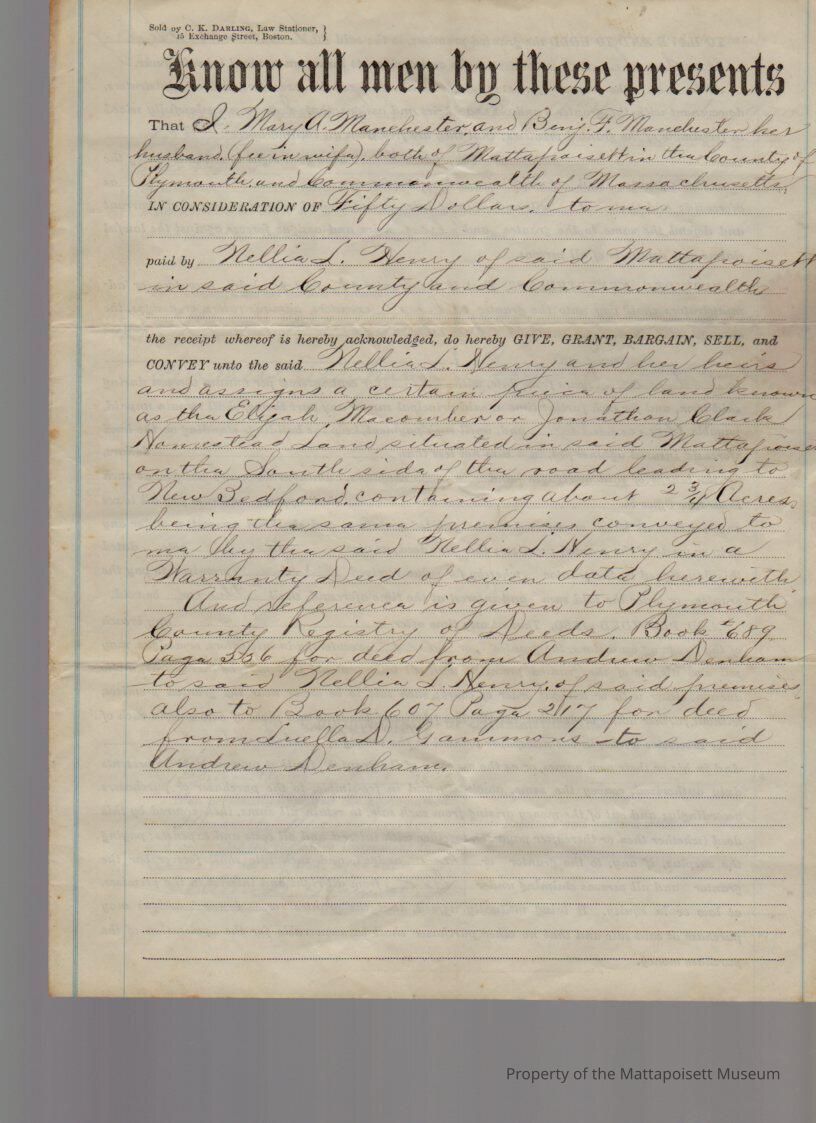 Sold by C. K. DARLING, Law Stationer,
15 Exchange Street, Boston.
Know all men by these presents
That I. Mary A. Manchester, and Benj. F. Manchester her
husband, (fee in wife), both of Mattapoisett in the County of
Plymouth, and Commonwealth of Massachusetts,
IN CONSIDERATION OF Fifty Dollars. to me
paid by Nellie L. Henry of said Mattapoisett
in said County and Commonwealth
the receipt whereof is hereby acknowledged, do hereby GIVE, GRANT, BARGAIN, SELL, and
CONVEY unto the said Nellie L. Henry and her heirs
and assigns a certain piece of land known
as the Elijah Macomber or Jonathan Clark
Homestead Land, situated in said Mattapoisett
on the South side of the road leading to
New Bedford, containing about 2 3/4 Acres,
being the same premises conveyed to
me by the said Nellie L. Henry in a
Warranty Deed of even date herewith
And reference is given to Plymouth
County Registry of Deeds. Book 689
Page 336 for deed from Andrew Denham
to said Nellie L. Henry, of said premises,
also to Book 607 Page 217 for deed
from Luella D. Gammons to said
Andrew Denham.
Property of the Mattapoisett Museum